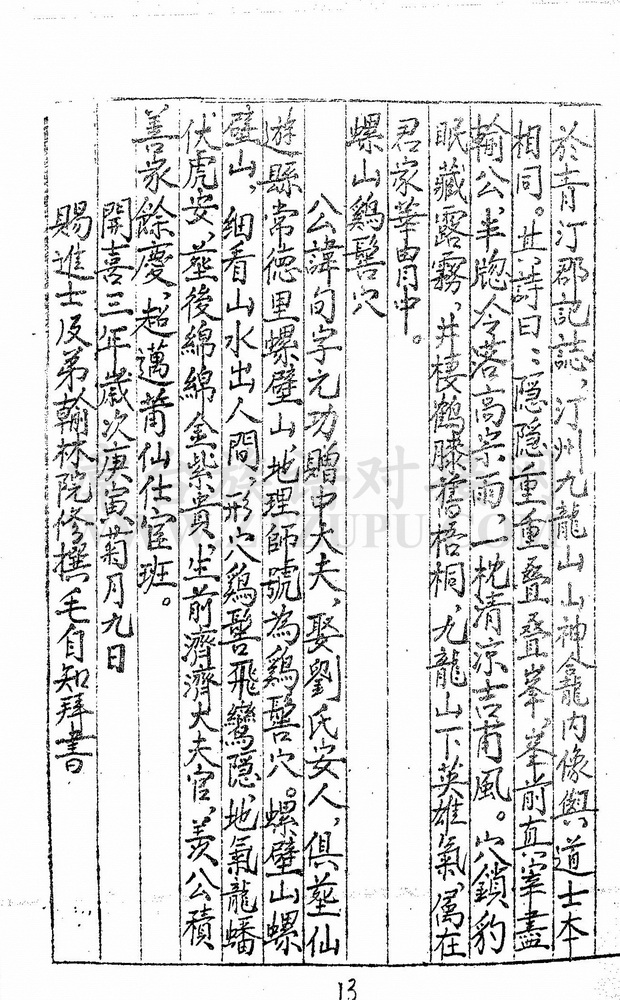 於青汀郡記誌，汀州九龍山山神龕內像與道士本
相同。其詩曰：隱隱重重叠叠峯，峯前真宰盡
輸公，半牕令落高宗雨，一枕清涼吉甫風。穴鎖豹
眠藏露霧，井棲鶴膝舊梧桐，九龍山下英雄氣，屬在
君家華胄中。
螺山鷄髻穴
八公諱旬字元功贈中大夫，娶劉氏安人，俱塟仙
遊縣常德里螺壁山，地理師號為鷄髻穴。螺壁山螺
壁山，細看山水出人間，形穴鷄髻飛鸞隱，地氣龍蟠
伏虎安，塟後綿綿金紫貴，生前濟濟大夫官，羨公積
善家餘慶，超邁莆仙仕宦班。
開喜三年歲次庚寅菊月九日
賜進士及弟翰林院修撰毛自知拜書
13